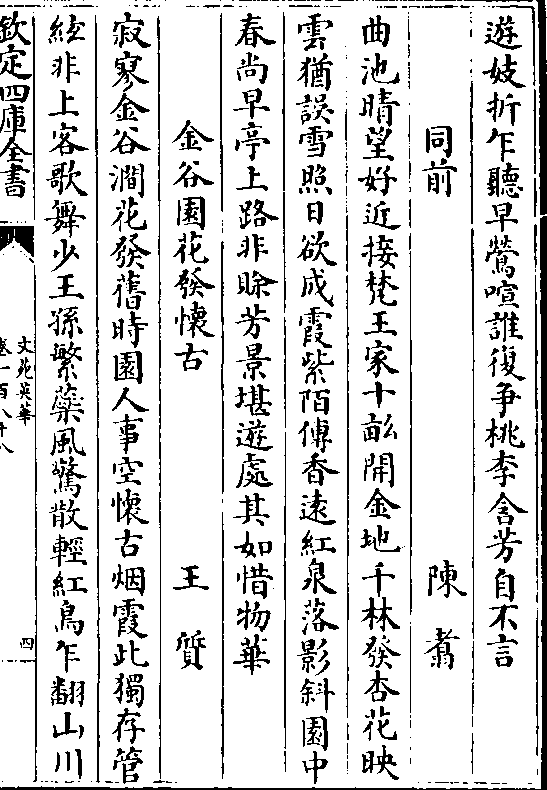 遊妓折乍聽早鶯喧誰復争桃李含芳自不言
同前 陳翥
曲池晴望好近接梵王家十畝開金地千林發杏花映
雲猶誤雪照日欲成霞紫陌傳香遠紅泉落影斜園中
春尚早亭上路非賖芳景堪遊處其如惜物華
金谷園花發懷古 王質
寂寥金谷澗花發舊時園人事空懷古烟霞此獨存管
絃非上客歌舞少王孫繁蘂風驚散輕紅鳥乍翻山川
欽定四庫全書
文苑英華
卷一百八十八
四